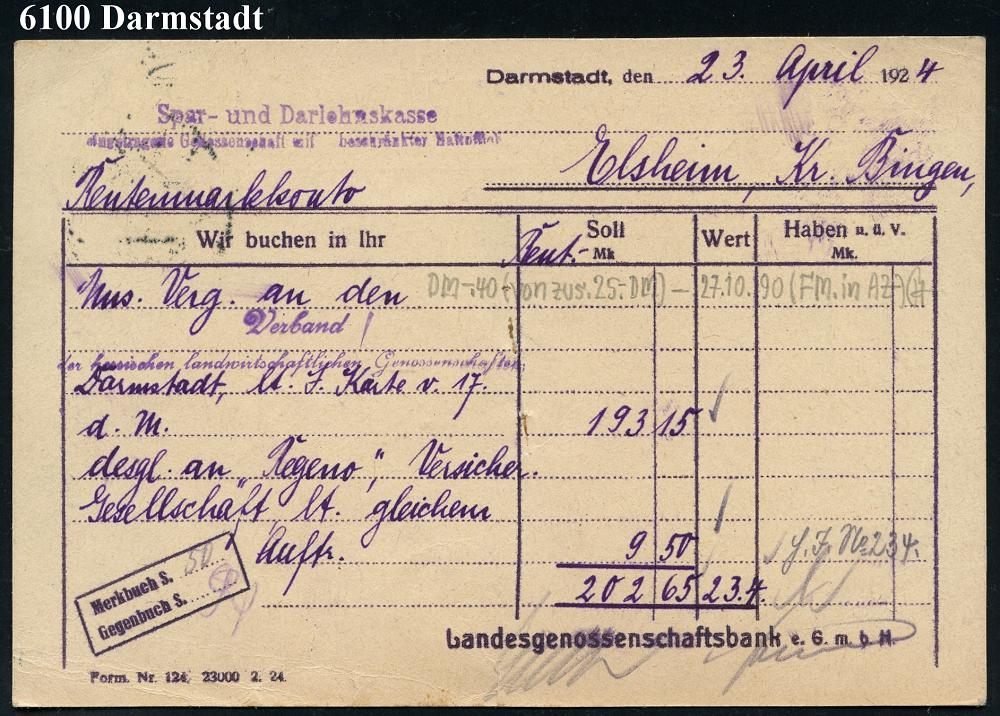 6100 Darmstadt
Darmstadt, den 23. April 1924
Spar- und Darlehnskasse
eingetragene Genossenschaft mit beschränkter Haftpflicht
Elsheim, Kr. Bingen,
Rentenmarkkonto
Wir buchen in Ihr Soll Wert Haben u. ü. V.
Rent.- Mk Mk.
Uns. Verg. an den DM -.40 (von zus. 25.- DM) - 27.10.90 (FM. in AZ)
Verband
der hessischen landwirtschaftlichen Genossenschaften,
Darmstadt, lt. I. Karte v. 17.
d. M. 193 15
desgl. an „Regeno", Versicher.
Gesellschaft, lt. gleichem
Auftr. 9 50 No 234.
202 65 23.4.
Merkbuch S. 50
Gegenbuch S.
Landesgenossenschaftsbank e. G. m. b. H.
Form. Nr. 124, 23000 2. 24.